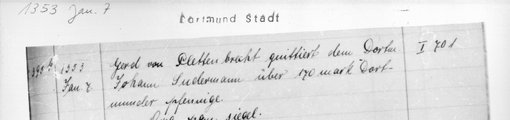 1353 Jan. 7
Dortmund Stadt
1353 Gerd von Plettenbracht quittiert dem Dortm I 701
Jan. 7. Johann Sudermann über 170 mark Dort-
munder pfennige.
siegel.